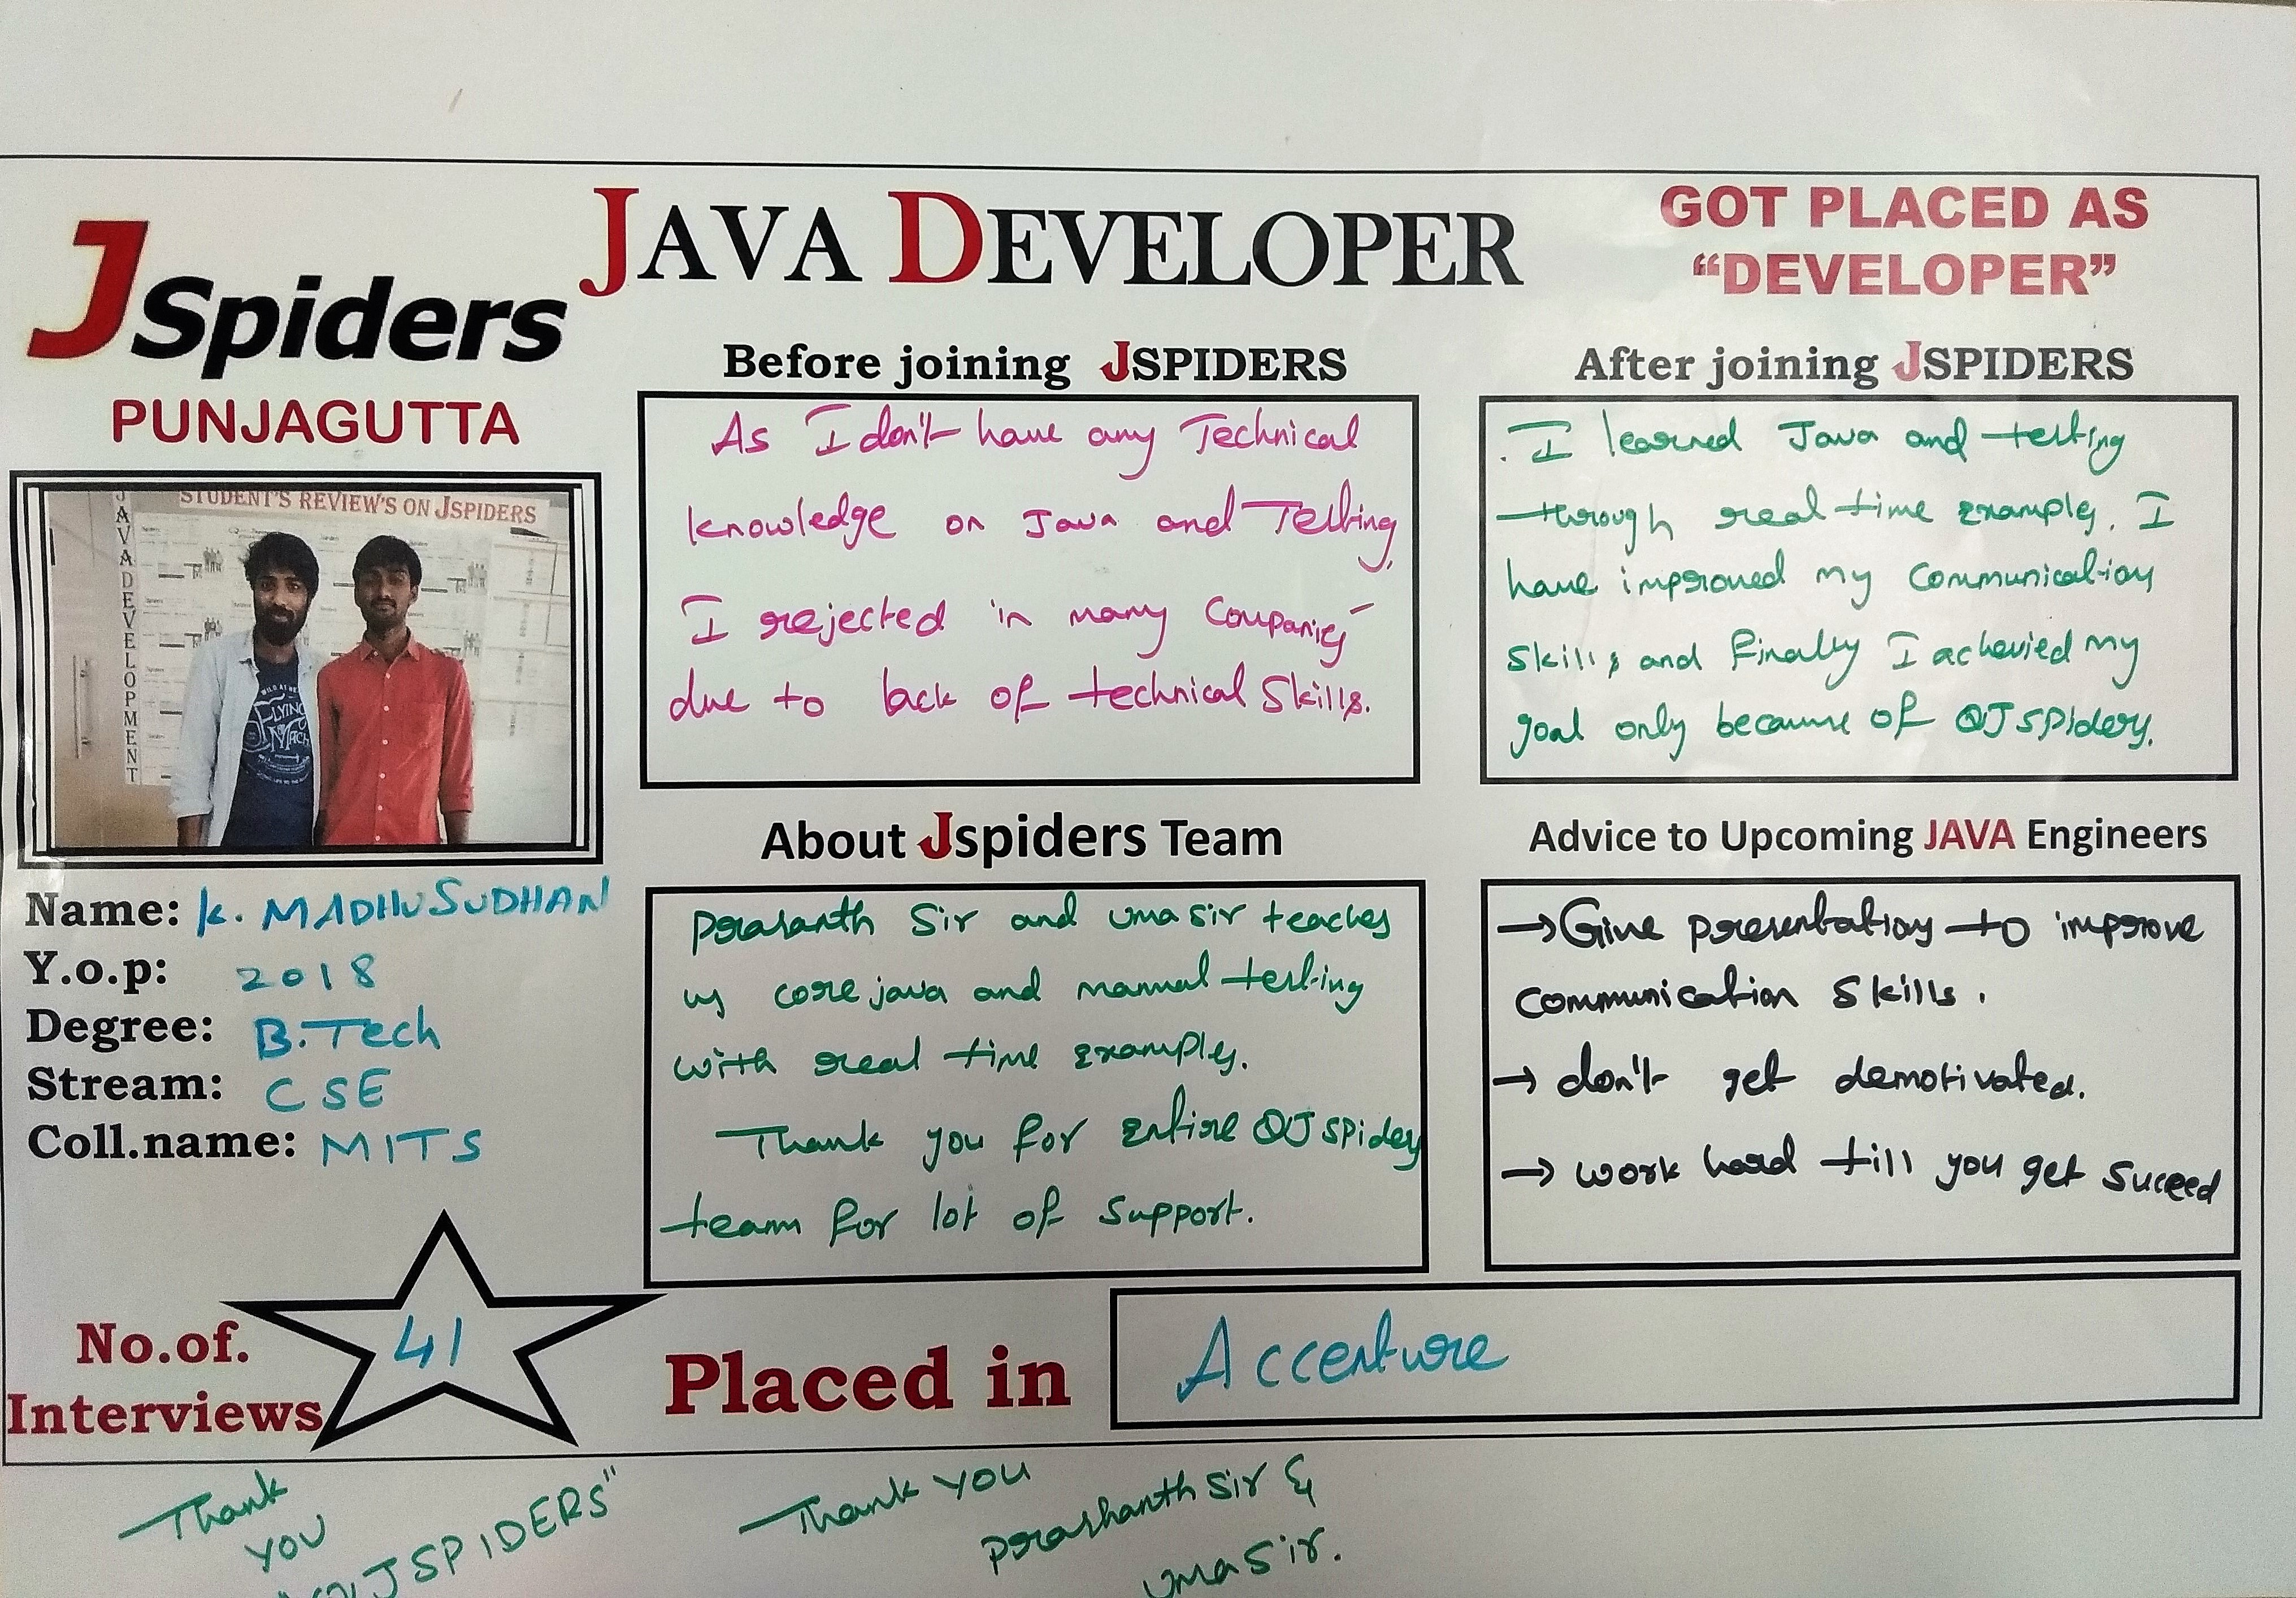 JSpiders
PUNJAGUTTA
JAVA DEVELOPER
GOT PLACED AS
“DEVELOPER”
STUDENT'S REVIEW'S ON JSPIDERS
JAVA DEVELOPMENT
FLYING
MACH
Name: K. MADHUSUDHAN
Y.o.p: 2018
Degree: B.Tech
Stream: CSE
Coll.name: MITS
Before joining JSPIDERS
As I don't have any Technical
knowledge on Java and Testing,
I rejected in many Companies
due to lack of technical Skills.
After joining JSPIDERS
I learned Java and testing
through real time examples. I
have improved my communication
skills and finally I achevied my
goal only because of QJspiders.
About Jspiders Team
Prasanth Sir and Uma Sir teaches
us core java and manual testing
with real time examples.
Thank you for entire QJspiders
team for lot of support.
Advice to Upcoming JAVA Engineers
→ Give presentations to improve
communication skills.
→ don't get demotivated.
→ work hard till you get suceed
No.of.
Interviews
41
Placed in
Accenture
Thank
you
"QJSPIDERS"
Thank you
Prashanth Sir &
Uma Sir.